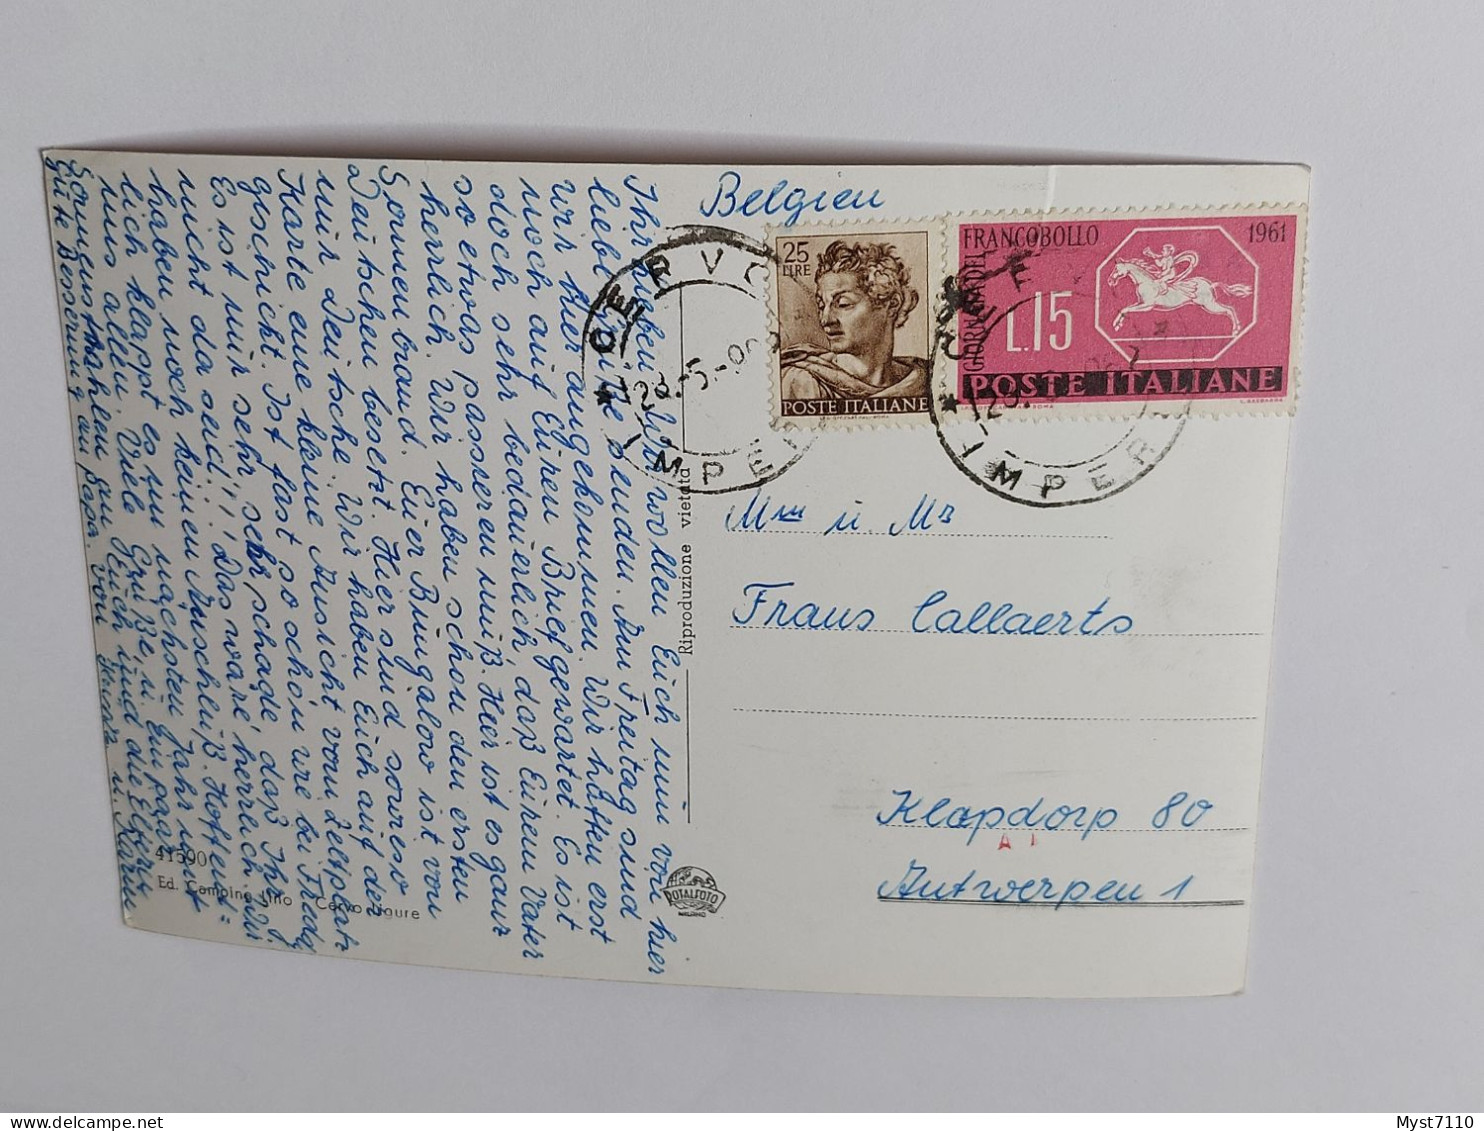 Ihr Lieben! Wir wollen Euch nun von hier
liebe Grüße senden. Am Freitag sind
wir hier angekommen. Wir hatten erst
noch auf Euren Brief gewartet. Es ist
doch sehr bedauerlich, daß Eurem Vater
so etwas passieren muß. Hier ist es ganz
herrlich. Wir haben schon den ersten
Sonnenbrand. Euer Bungalow ist von
Deutschen besetzt. Hier sind sowieso
nur Deutsche. Wir haben Euch auf der
Karte eine kleine Aussicht vom Zeltplatz
geschickt. Ist fast so schön wie bei
Es ist nur sehr, sehr schade, daß Ihr
nicht da seid!!! Das wäre herrlich. Wir
haben noch keinen Anschluß. Hoffent=
lich klappt es im nächsten Jahr mit
uns allen. Viele Grüße, u.
Sonnenstrahlen für Euch und die Eltern
Gute Besserung an Papa. von u. Karin
415900
Ed. Lino - Cervo Ligure
Riproduzione vietata
ROTALFOTO
MILANO
Belgien
CERVO
28.-5.-962
IMPERIA
25
LIRE
POSTE ITALIANE
GIORNATA DEL
FRANCOBOLLO
1961
L.15
POSTE ITALIANE
Mme u Mr
Frans Callaerts
Klapdorp 80
Antwerpen 1
Myst7110